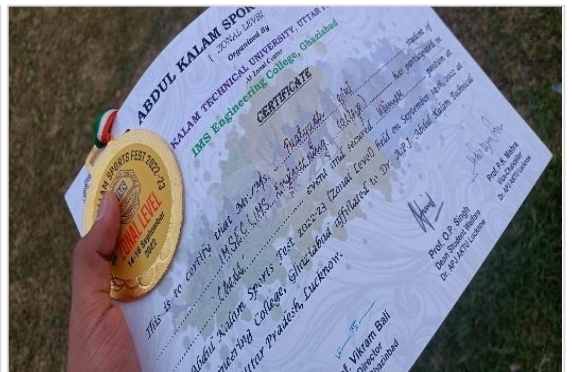 ABDUL KALAM SPOR
( ZONAL LEVEL
Organized By
KALAM TECHNICAL UNIVERSITY, UTTAR P
At Zonal Center
IMS Engineering College, Ghaziabad
CERTIFICATE
This is to certify that Mr./Ms. Goel student of
IMSEC (IMS Engineering College) has participated in
event and secured position at
Abdul Kalam Sports Fest 2022-23 (Zonal Level) held on September
neering College, Ghaziabad affiliated to Dr. A.P.J. Abdul Kalam Technical
Uttar Pradesh, Lucknow.
f. Vikram Bali
Director
Ghaziabad
Prof. O.P. Singh
Dean Student Welfare
Dr. APJ AKTU Lucknow
Prof. P.K. Mishra
Vice-Chancellor
Dr. APJ AKTU Lucknow
AM SPORTS FEST 2022-23
SPORTS
ZONAL LEVEL
14-16 September
2022